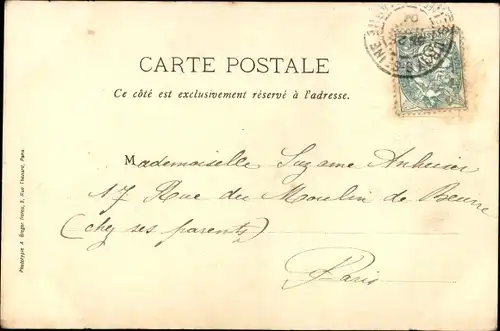 CARTE POSTALE
Ce côté est exclusivement réservé à l'adresse.
Mademoiselle Suzanne
17 Rue du Moulin de Beurre
(chez ses parents)
Paris
Phototypie A. Breger frères, 9, Rue Thénard, Paris